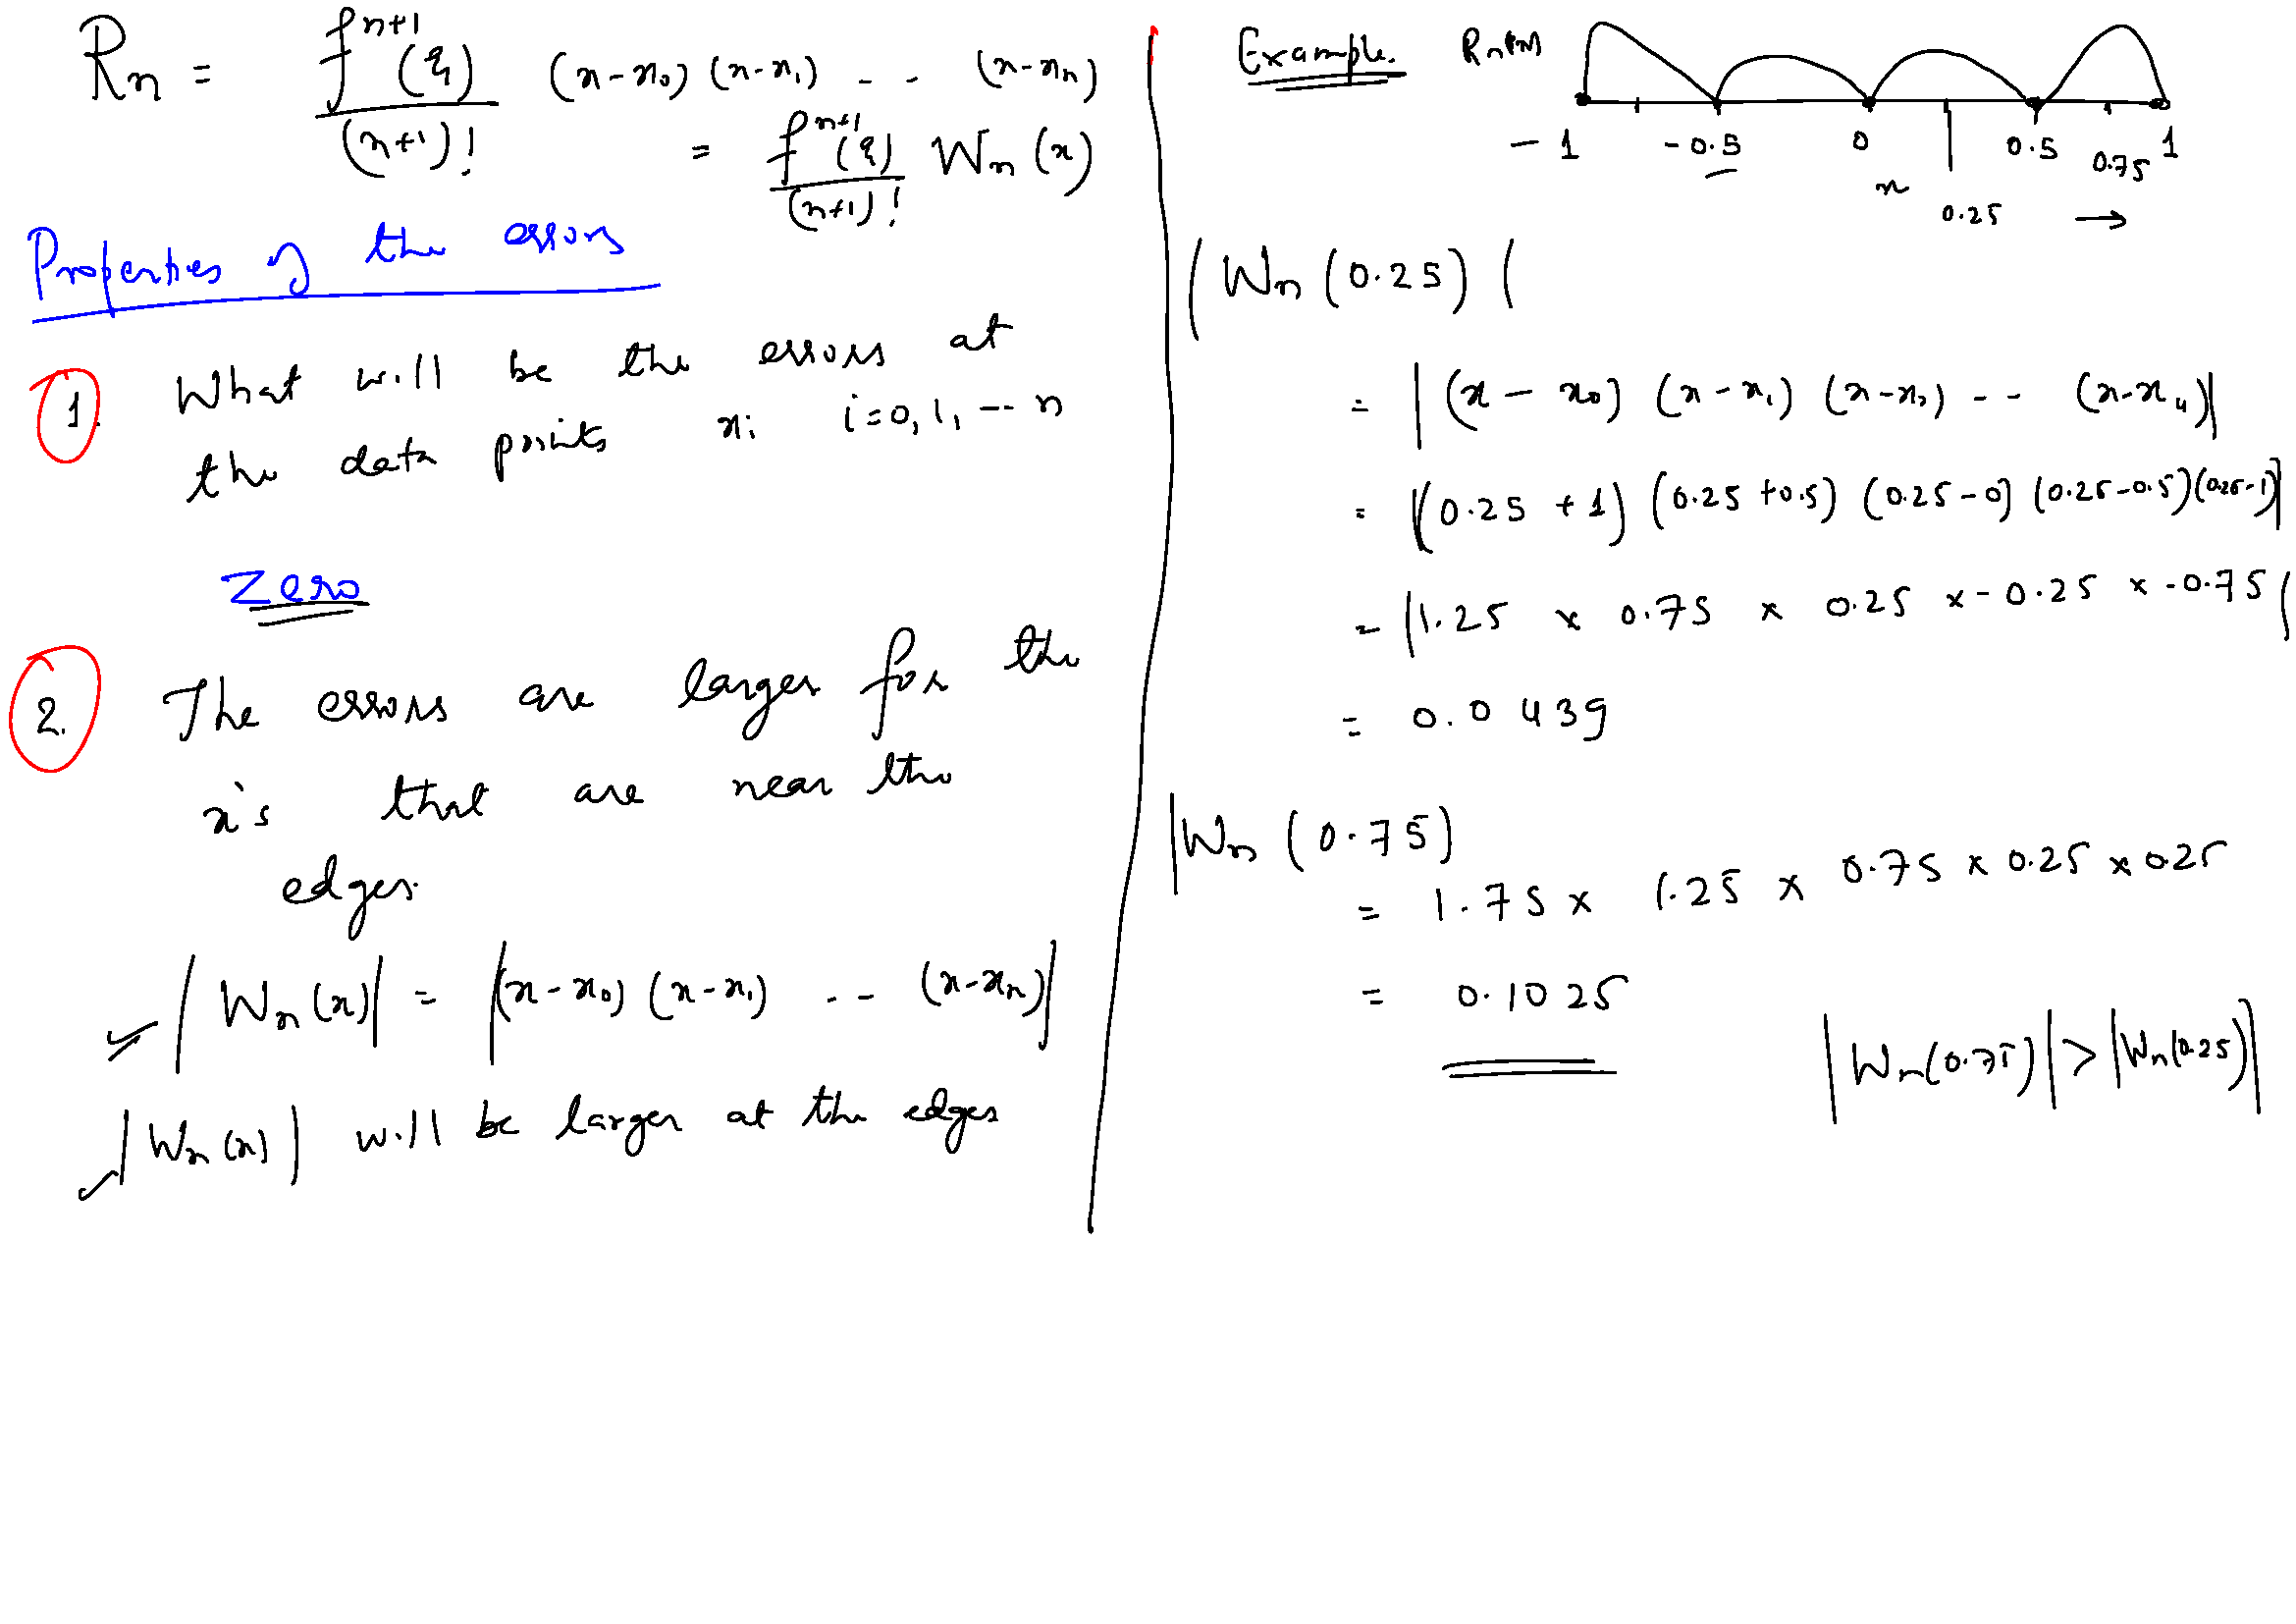 Rn = f^{n+1}(ξ) / (n+1)! (x-x₀) (x-x₁) - - (x-xₙ)
= f^{n+1}(ξ) / (n+1)! Wn (x)
Properties of the errors
1. What will be the errors at
the data points xi i=0, 1, -- n
Zero
2. The errors are larger for the
x's that are near the
edges.
|Wn (x)| = |(x-x₀) (x-x₁) -- (x-xₙ)|
|Wn (x)| will be larger at the edges
Example.
-1 -0.5 0 0.5 0.75 1
x 0.25 →
|Wn (0.25)|
= |(x - x₀) (x-x₁) (x-x₂) -- (x-x₄)|
= |(0.25 +1) (0.25 +0.5) (0.25-0) (0.25-0.5)(0.25-1)|
= |1.25 x 0.75 x 0.25 x -0.25 x -0.75|
= 0.0439
|Wn (0.75)
= 1.75 x 1.25 x 0.75 x 0.25 x 0.25
= 0.1025
|Wn(0.75)| > |Wn(0.25)|